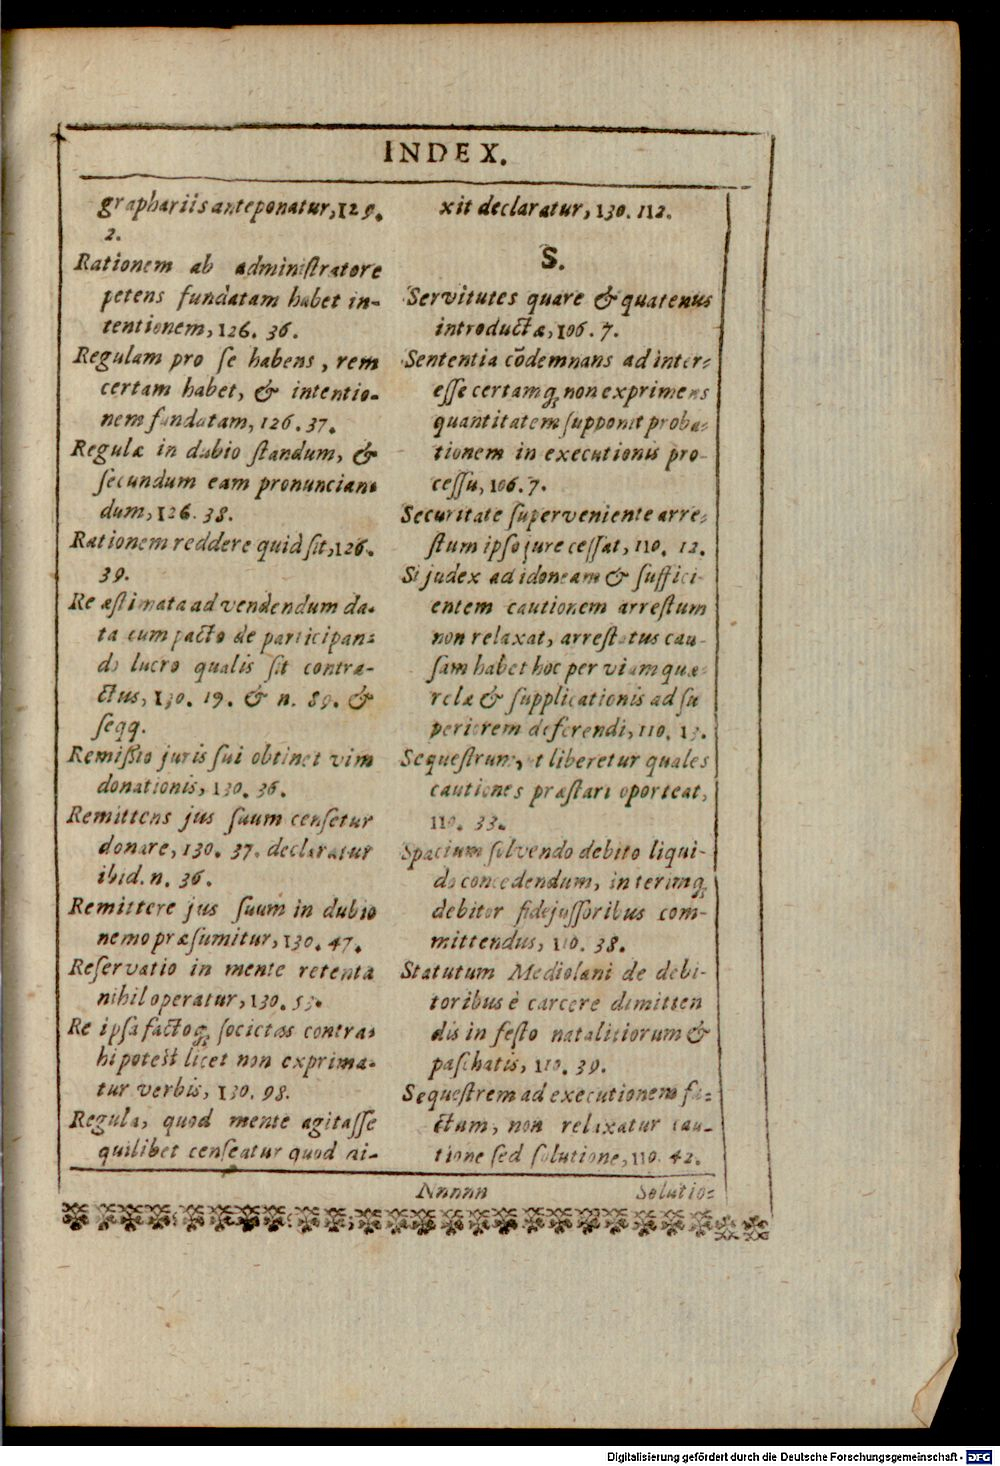 INDEX.
graphariis anteponatur, 129.
2.
Rationem ab administratore
petens fundatam habet in-
tentionem, 126. 36.
Regulam pro se habens, rem
certam habet, & intentio-
nem fundatam, 126. 37.
Regulæ in dubio standum, &
secundum eam pronuncian-
dum, 126. 38.
Rationem reddere quid sit, 126.
39.
Re æstimata ad vendendum da-
ta cum pacto de participan-
do lucro qualis sit contra-
ctus, 130. 19. & n. 89. &
seqq.
Remissio juris sui obtinet vim
donationis, 130. 36.
Remittens jus suum censetur
donare, 130. 37. declaratur
ibid. n. 36.
Remittere jus suum in dubio
nemo præsumitur, 130. 47.
Reservatio in mente retenta
nihil operatur, 130. 53.
Re ipsa factoq; societas contra-
hi potest licet non exprima-
tur verbis, 130. 98.
Regula, quod mente agitasse
quilibet censeatur quod ai-
xit declaratur, 130. 112.
S.
Servitutes quare & quatenus
introductæ, 106. 7.
Sententia cōdemnans ad inter-
esse certamq; non exprimens
quantitatem supponit proba-
tionem in executionis pro-
cessu, 106. 7.
Securitate superveniente arre-
stum ipso jure cessat, 110. 12.
Si judex ad idoneam & suffici-
entem cautionem arrestum
non relaxat, arrestatus cau-
sam habet hoc per viam quæ-
relæ & supplicationis ad su
periorem deferendi, 110. 13.
Sequestrum, ut liberetur quales
cautiones præstari oporteat,
110. 33.
Spacium solvendo debito liqui-
do concedendum, interimq;
debitor fidejussoribus com-
mittendus, 110. 38.
Statutum Mediolani de debi-
toribus è carcere dimitten
dis in festo natalitiorum &
paschatis, 110. 39.
Sequestrem ad executionem fa-
ctum, non relaxatur cau-
tione sed solutione, 110. 42.
Nnnnn
Solutio-
Digitalisierung gefördert durch die Deutsche Forschungsgemeinschaft - DFG